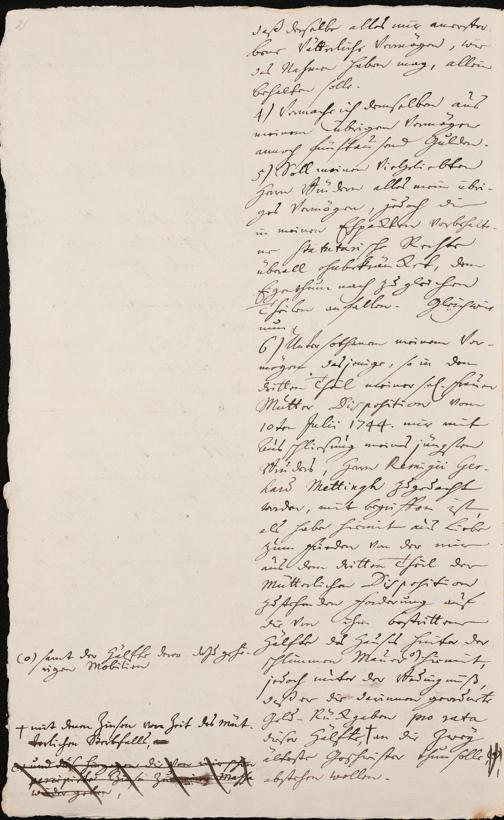 daß derselbe alles mir anerstor-
bene Vätterliche Vermögen, wie
das Nahmen haben mag, allein
behalten solle.
4) Vermache ich demselben aus
meinem übrigen Vermögen
annoch fünftausend Gulden.
5) Soll meinen Vielgeliebten
Herrn Brüdern alles mein übri-
ges Vermögen, jedoch die
in meinen Ehpakten vorbehalte-
ne statutarische Rechte
überall ohnbekränket, dem
Eigenthum nach zu gleichen
Theilen anfallen. Gleichwie
nun
6) Unter sothanem meinem Ver-
mögen dasjenige, so in dem
dritten Theil meiner sel. Frauen
Mutter Disposition vom
10ten Julii 1744. mir mit
Ausschließung meines jüngsten
Bruders, Herrn Remigii Ger-
hard Mettingh zugedacht
worden, mit begriffen ist,
als habe hiermit aus Liebe
zum Frieden von der mir
aus dem dritten Theil der
Mütterlichen Disposition
zustehenden Forderung auf
die von ihm bestrittene
Hälfte des Hauses hinter der
schlimmen Mauer (o) hiermit,
jedoch unter der Bedingniß,
daß er die darinnen
Geld-Rückgaben pro rata
dieser Hälfte, + an die zwey
älteste Geschwister thun solle,
abstehen wollen.
(o) samt der Hälfte derer dazu gehö-
rigen Mobilien
+ mit denen Zinsen vom Zeit des Müt-
terlichen Sterbfalls,